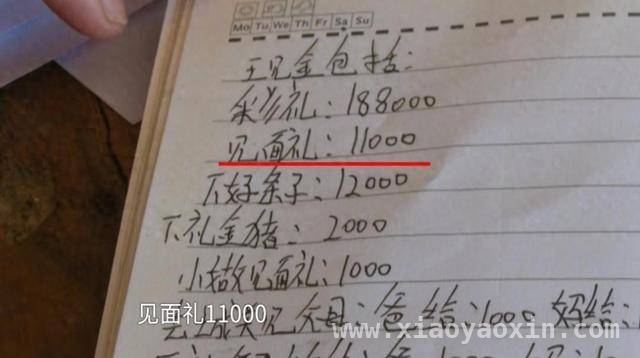 Mo Tu We Th Fr Sa Su
现金包括:
彩礼:188000
见面礼:11000
下好条子:12000
下礼金猪:2000
小妹见面礼:1000
去娘家见父母:爸给:1000 妈给:
见面礼11000
www.xiaoyaoxin.com